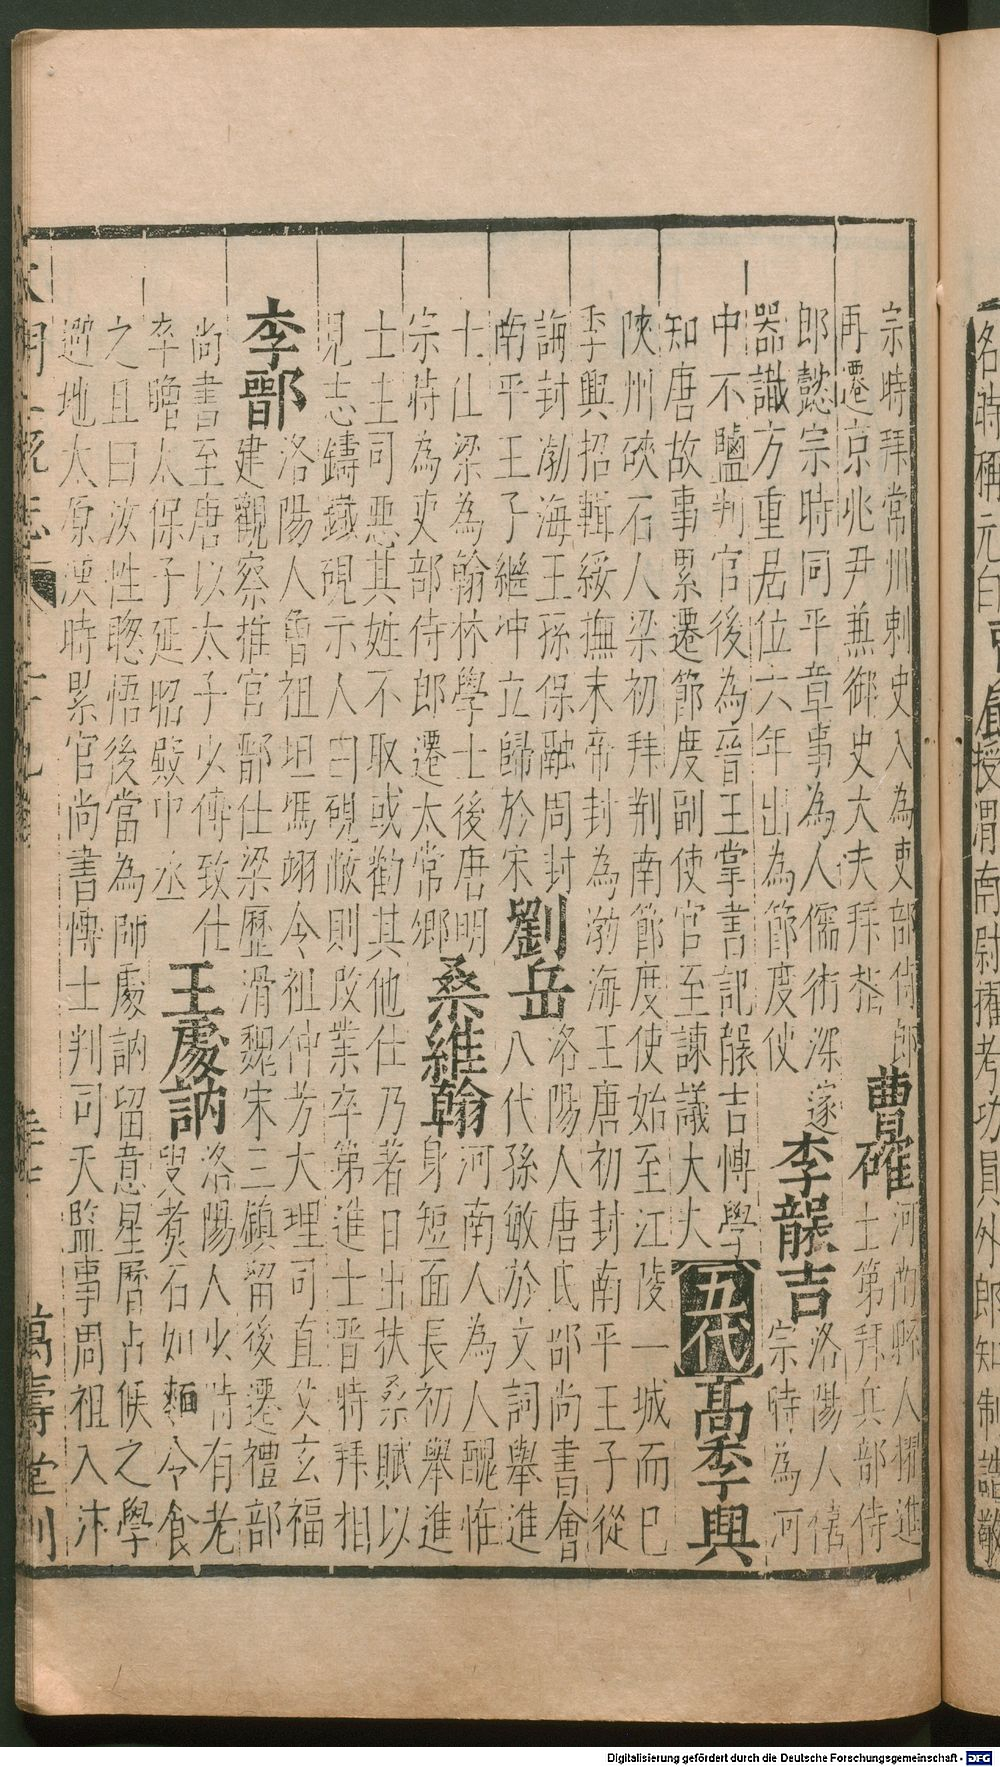 宗時拜常州刺史入為吏部侍郎
再遷京兆尹兼御史大夫拜
曹確 河南縣人擢進
士第拜兵部侍
郎懿宗時同平章事為人儒術深邃
器識方重居位六年出為節度使
李襲吉 洛陽人僖
宗時為河
中不鹽判官後為晉王掌書記襲吉博學
知唐故事累遷節度副使官至諫議大夫
五代 高季興
陝州硤石人梁初拜荆南節度使始至江陵一城而巳
季興招輯綏撫末帝封為渤海王唐初封南平王子從
誨封渤海王孫保融周封
南平王子繼冲立歸於宋
劉岳 洛陽人唐民部尚書會
八代孫敏於文詞舉進
士仕梁為翰林學士後唐明
宗特為吏部侍郎遷太常卿
桑維翰 河南人為人醜恠
身短面長初舉進
士主司惡其姓不取或勸其他仕乃著日出扶桑賦以
見志鑄鐵硯示人曰硯敝則改業卒第進士晉特拜相
李鄑 洛陽人曾祖坦馮翊令祖仲芳大理司直父玄福
建觀察推官鄑仕梁歷滑魏宋三鎮留後遷禮部
尚書至唐以太子少傅致仕
卒贈太保子延昭殿中丞
王處訥 洛陽人少時有老
叟煑石如麵令食
之且曰汝性聦悟後當為師處訥留意星曆占候之學
避地太原漢時累官尚書博士判司天監事周祖入汴
大明一統志 萬壽堂刊
Digitalisierung gefördert durch die Deutsche Forschungsgemeinschaft - DFG